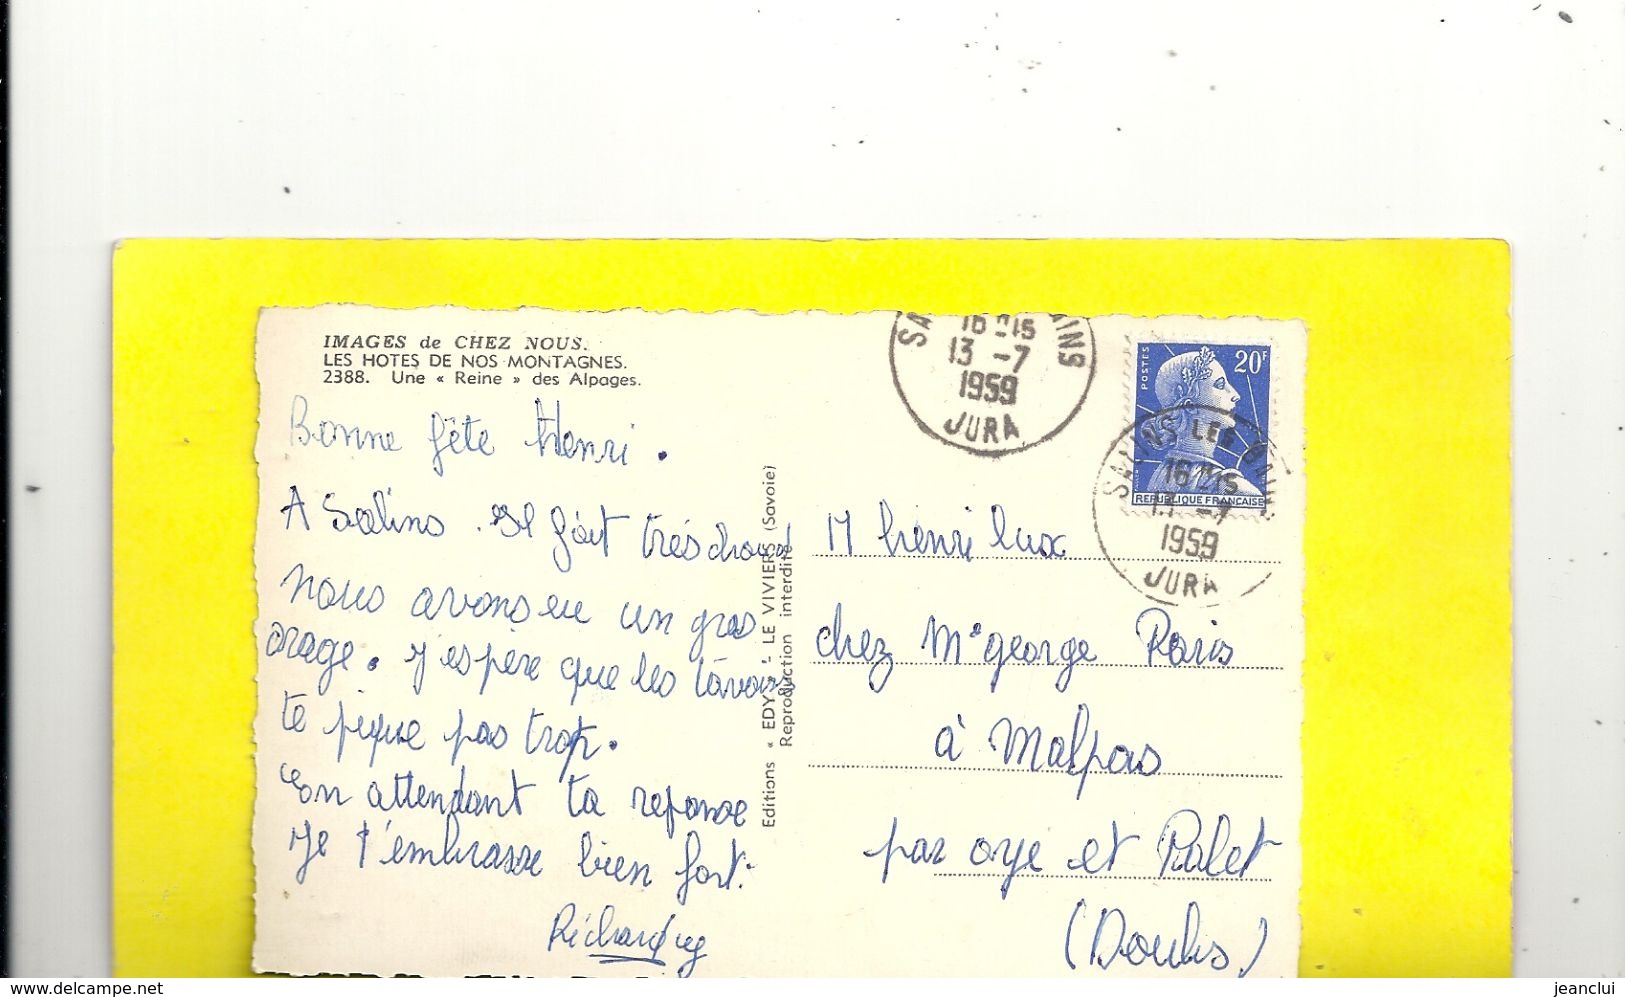 IMAGES de CHEZ NOUS.
LES HOTES DE NOS MONTAGNES.
2388. Une « Reine » des Alpages.
Bonne fête Henri.
A Salins. Il fait très chaud
nous avons eu un gros
orage. J'espère que les tavons
te pique pas trop.
En attendant ta reponse
Je t'embrasse bien fort.
Richard
Editions « EDY » - LE VIVIERS (Savoie)
Reproduction interdite
16 - 15
13 - 7
1959
JURA
POSTES
20F
REPUBLIQUE FRANCAISE
SALINS LES BAINS
16 - 15
13 - 7
1959
JURA
M henri lux
chez Mr george Paris
à Malpas
par oye et Palet
(Doubs)
www.delcampe.net
jeanclui